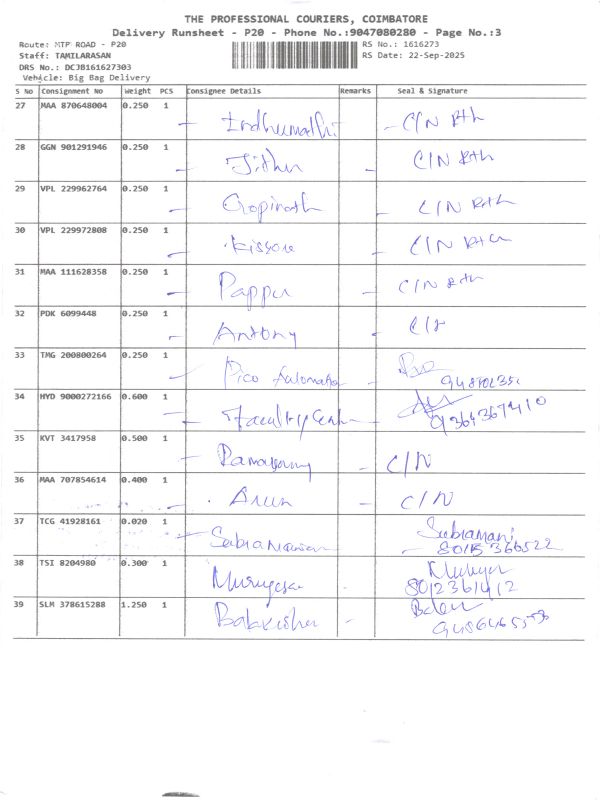 THE PROFESSIONAL COURIERS, COIMBATORE
Delivery Runsheet - P20 - Phone No.:9047080280 - Page No.:3
Route: MTP ROAD - P20
RS No.: 1616273
Staff: TAMILARASAN
RS Date: 22-Sep-2025
DRS No.: DCJB161627303
Vehicle: Big Bag Delivery
S No Consignment No Weight PCS Consignee Details Remarks Seal & Signature
27 MAA 870648004 0.250 1 Indhumathi C/N Rth
28 GGN 901291946 0.250 1 Jithu C/N Rth
29 VPL 229962764 0.250 1 Gopinath C/N Rth
30 VPL 229972808 0.250 1 Kissore C/N Rth
31 MAA 111628358 0.250 1 Pappu C/N Rth
32 PDK 6099448 0.250 1 Antony
33 TMG 200800264 0.250 1 Pico
34 HYD 9000272166 0.600 1
35 KVT 3417958 0.500 1 C/N
36 MAA 707854614 0.400 1 Arun C/N
37 TCG 41928161 0.020 1 Subramani
8015366522
38 TSI 8204980 0.300 1
8012361412
39 SLM 378615288 1.250 1